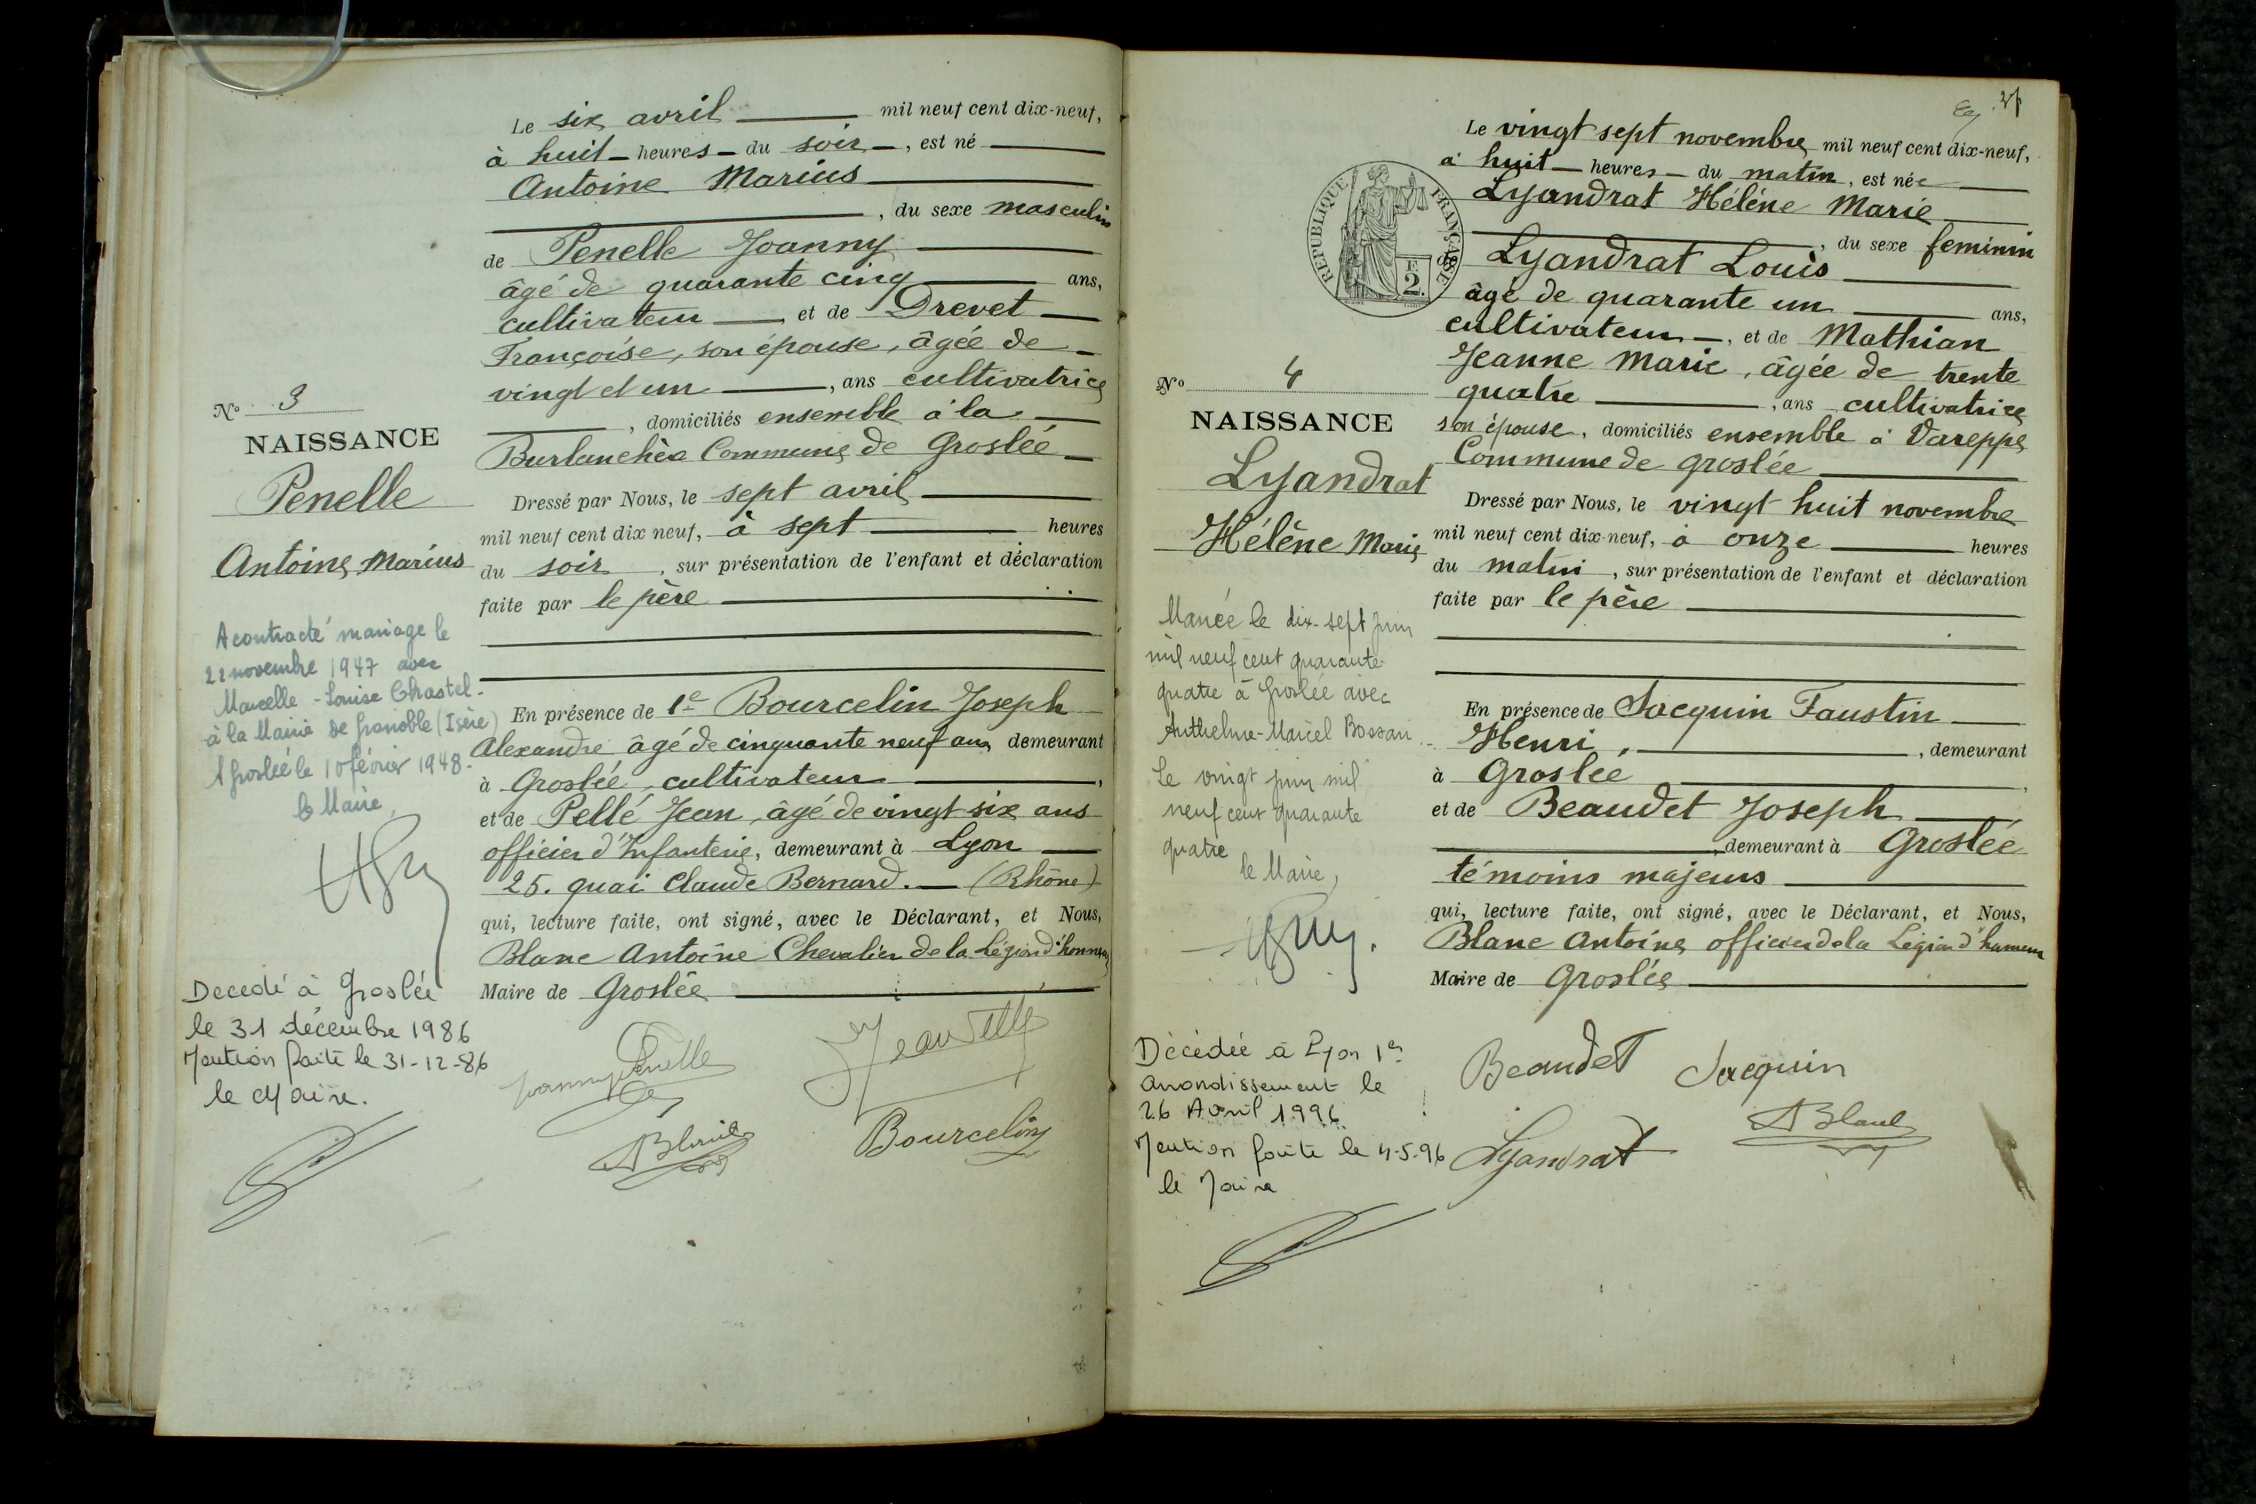 Le six avril mil neuf cent dix-neuf,
à huit heures du soir, est né
Antoine Marius
, du sexe masculin
de Penelle Joanny
âgé de quarante cinq ans,
cultivateur, et de Drevet
Françoise, son épouse, âgée de
vingt et un, ans cultivatrice
, domiciliés ensemble à la
Commune de Groslée
Dressé par Nous, le sept avril
mil neuf cent dix neuf, à sept heures
du soir, sur présentation de l'enfant et déclaration
faite par le père
En présence de 1e Bourcelin Joseph
Alexandre âgé de cinquante neuf ans, demeurant
à Groslée, cultivateur,
et de Pellé Jean, âgé de vingt six ans
officier d'Infanterie, demeurant à Lyon
25. quai Claude Bernard. (Rhône)
qui, lecture faite, ont signé, avec le Déclarant, et Nous,
Blanc Antoine Chevalier de la Légion d'honneur
Maire de Groslée
Joanny Penelle
Jean Pellé
ABlanc
Bourcelin
No 3
NAISSANCE
Penelle
Antoine Marius
A contracté mariage le
22 novembre 1947 avec
Marcelle-Louise Chastel-
à la Mairie de Grenoble (Isère)
A Groslée le 10 février 1948.
le Maire,
Décédé à Groslée
le 31 décembre 1986
Mention faite le 31-12-86
le Maire.
Le vingt sept novembre mil neuf cent dix-neuf,
à huit heures du matin, est née
Lyandrat Hélène Marie
, du sexe feminin
de Lyandrat Louis
âgé de quarante un ans,
cultivateur, et de Mathian
Jeanne Marie, âgée de trente
quatre, ans cultivatrice
son épouse, domiciliés ensemble à Vareppe
Commune de Groslée
Dressé par Nous, le vingt huit novembre
mil neuf cent dix-neuf, à onze heures
du matin, sur présentation de l'enfant et déclaration
faite par le père
En présence de Jacquin Faustin
Henri, , demeurant
à Groslée,
et de Beaudet Joseph
, demeurant à Groslée
témoins majeurs
qui, lecture faite, ont signé, avec le Déclarant, et Nous,
Blanc Antoine officier de la Légion d'honneur
Maire de Groslée
Beaudet Jacquin
Lyandrat ABlanc
RÉPUBLIQUE FRANÇAISE
F.
2.
No 4
NAISSANCE
Lyandrat
Hélène Marie
Mariée le dix-sept juin
mil neuf cent quarante-
quatre à Groslée avec
Anthelme-Marcel Bossan.
Le vingt juin mil
neuf cent quarante
quatre
le Maire,
Décédée à Lyon 1er
arrondissement le
26 Avril 1996
Mention faite le 4-5-96
le Maire